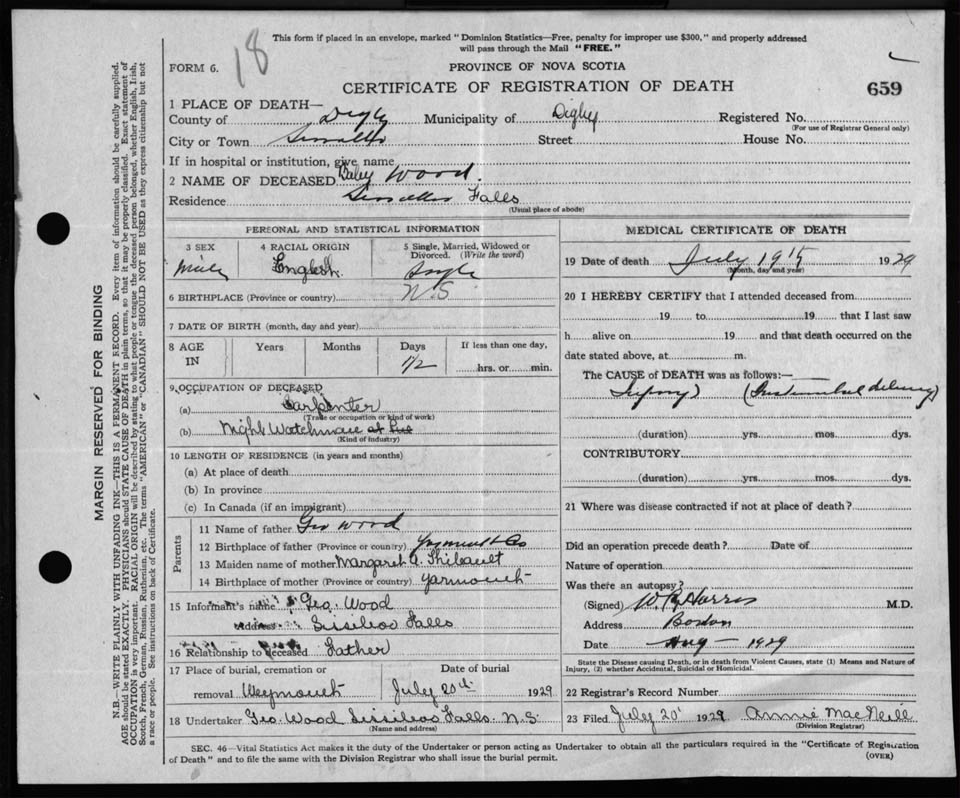 18
This form if placed in an envelope, marked "Dominion Statistics—Free, penalty for improper use $300," and properly addressed
will pass through the Mail "FREE."
FORM 6.
PROVINCE OF NOVA SCOTIA
CERTIFICATE OF REGISTRATION OF DEATH
659
1 PLACE OF DEATH—
County of Digby Municipality of Digby Registered No.
(For use of Registrar General only)
City or Town Street House No.
If in hospital or institution, give name
2 NAME OF DECEASED Baby Wood.
Residence Falls
(Usual place of abode)
PERSONAL AND STATISTICAL INFORMATION
3 SEX
Male
4 RACIAL ORIGIN
English.
5 Single, Married, Widowed or
Divorced. (Write the word)
Single
6 BIRTHPLACE (Province or country) N.S
7 DATE OF BIRTH (month, day and year)
8 AGE
IN
Years Months Days
1/2
If less than one day,
hrs. or min.
9 OCCUPATION OF DECEASED
(a) Carpenter
(Trade or occupation or kind of work)
(b) Night Watchman
(Kind of industry)
10 LENGTH OF RESIDENCE (in years and months)
(a) At place of death
(b) In province
(c) In Canada (if an immigrant)
Parents
11 Name of father Geo Wood
12 Birthplace of father (Province or country) Yarmouth Co
13 Maiden name of mother Margaret A. Thibault
14 Birthplace of mother (Province or country) Yarmouth
15 Informant's name Geo. Wood
Address Sissiboo Falls
16 Relationship to deceased Father
17 Place of burial, cremation or
removal Weymouth
Date of burial
July 20th 1929
18 Undertaker Geo. Wood Sissiboo Falls. N.S.
(Name and address)
MEDICAL CERTIFICATE OF DEATH
19 Date of death July 19th 1929
(Month, day and year)
20 I HEREBY CERTIFY that I attended deceased from
19 to 19 that I last saw
h alive on 19 and that death occurred on the
date stated above, at m.
The CAUSE of DEATH was as follows:
(duration) yrs. mos. dys.
CONTRIBUTORY
(duration) yrs. mos. dys.
21 Where was disease contracted if not at place of death?
Did an operation precede death? Date of
Nature of operation
Was there an autopsy?
(Signed) Harris M.D.
Address
Date Aug — 1929
State the Disease causing Death, or in death from Violent Causes, state (1) Means and Nature of
Injury, (2) whether Accidental, Suicidal or Homicidal.
22 Registrar's Record Number
23 Filed July 20' 1929 Annie MacNeill
(Division Registrar)
SEC. 46—Vital Statistics Act makes it the duty of the Undertaker or person acting as Undertaker to obtain all the particulars required in the "Certificate of Registration
of Death" and to file the same with the Division Registrar who shall issue the burial permit.
(OVER)
MARGIN RESERVED FOR BINDING
N.B.—WRITE PLAINLY WITH UNFADING INK—THIS IS A PERMANENT RECORD. Every item of information should be carefully supplied.
AGE should be stated EXACTLY. PHYSICIANS should STATE CAUSE OF DEATH in plain terms, so that it may be properly classified. Exact statement of
OCCUPATION is very important. RACIAL ORIGIN will be described by stating to what people or tongue the deceased person belonged, whether English, Irish,
Scotch, French, German, Russian, Ruthenian, etc. The terms "AMERICAN" or "CANADIAN" SHOULD NOT BE USED as they express citizenship but not
a race or people. See instructions on back of Certificate.